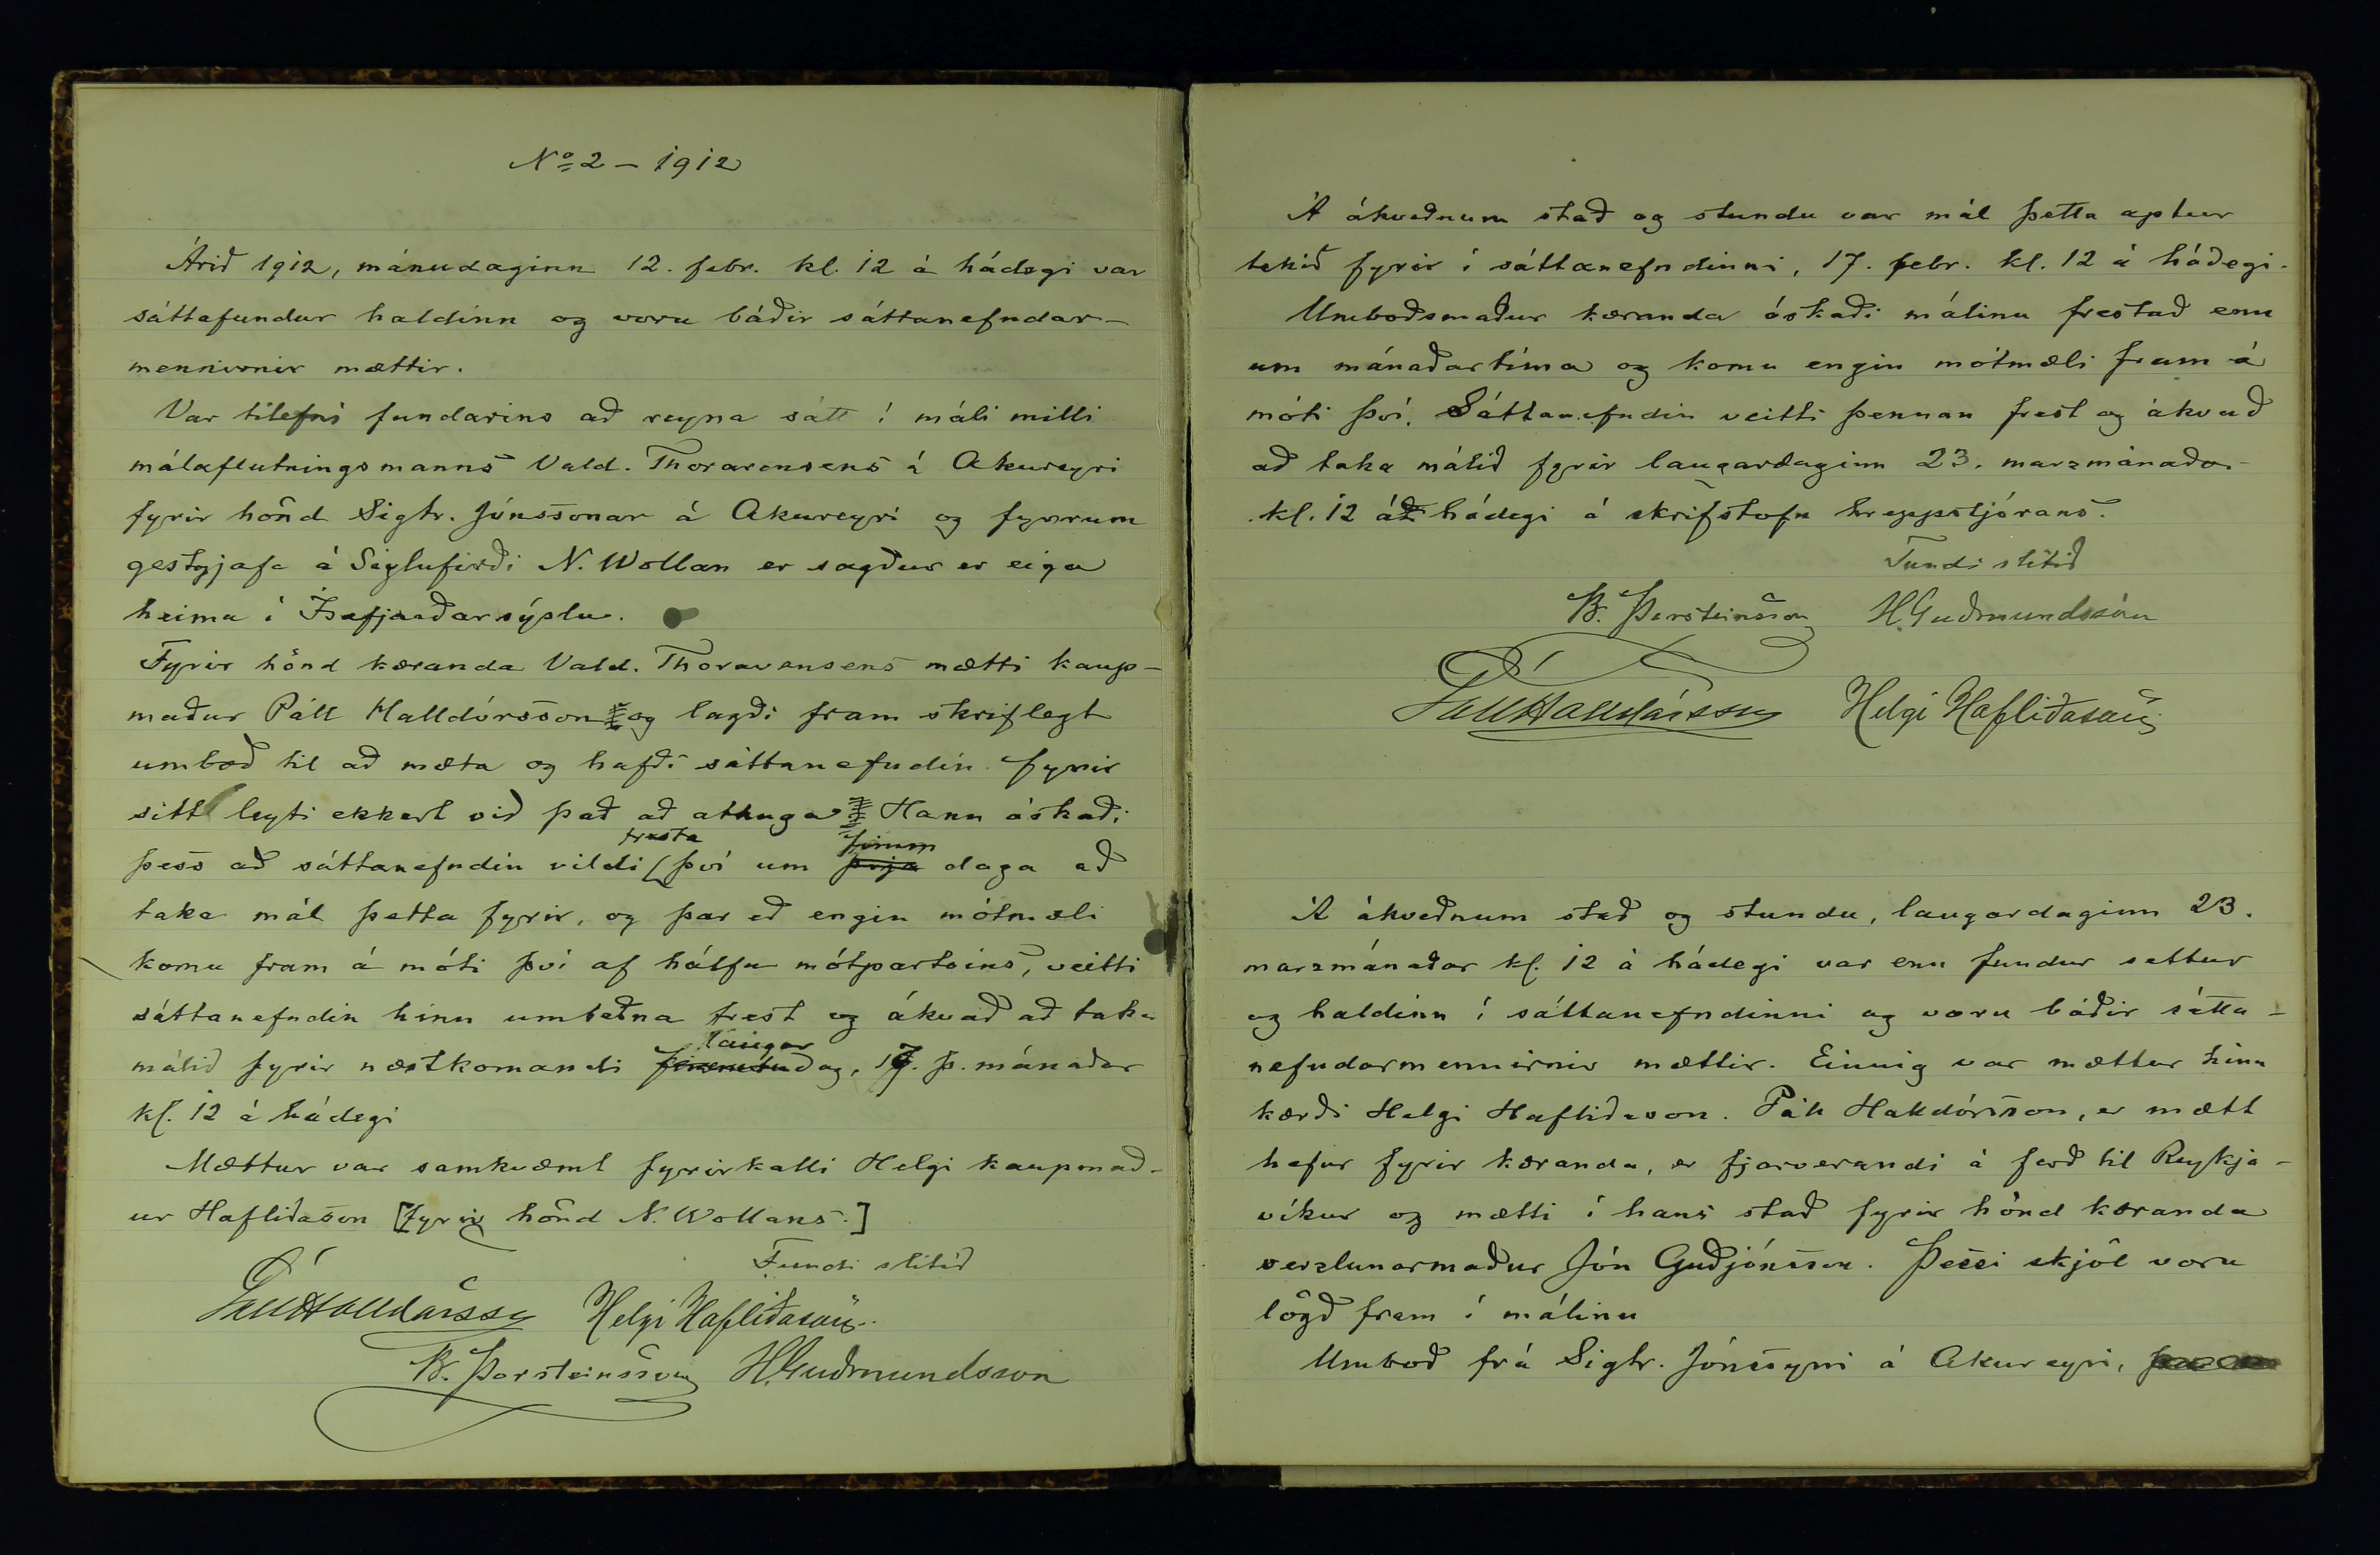 No 2 – 1912
Árið 1912, mánudaginn 12. febr. kl. 12 á hádegi var
sáttafundur haldinn og voru báðir sáttanefndar-
mennirnir mættir.
Var tilefni fundarins að reyna sátt í máli milli
málaflutningsmanns Vald. Thorarensens á Akureyri
fyrir hönd Sigtr. Jónssonar á Akureyri og fyrrum
gestgjafa á Siglufirði N. Wollan er sagður er eiga
heima í Ísafjarðarsýslu.
Fyrir hönd kæranda Vald. Thorarensens mætti kaup-
maður Páll Halldórsson og lagði fram skriflegt
umboð til að mæta og hafði sáttanefndin fyrir
sitt leyti ekkert við það að athuga Hann óskaði
þess að sáttanefndin vildi fresta því um fimm daga að
taka mál þetta fyrir, og þar eð engin mótmæli
komu fram á móti því af hálfu mótpartsins, veitti
sáttanefndin hinn umbeðna frest og ákvað að taka
málið fyrir næstkomandi laugardag, 17. þ. mánaðar
kl. 12 á hádegi
Mættur var samkvæmt fyrirkalli Helgi kaupmað-
ur Hafliðason [fyrir hönd N. Wollans.]
Fundi slitið
Páll Halldórsson Helgi Hafliðason
B. Þorsteinsson H. Guðmundsson
Á ákveðnum stað og stundu var mál þetta aptur
tekið fyrir í sáttanefndinni, 17. febr. kl. 12 á hádegi.
Umboðsmaður kæranda óskaði málinu frestað enn
um mánaðartíma og komu engin mótmæli fram á
móti því. Sáttanefndin veitti þennan frest og ákvað
að taka málið fyrir laugardaginn 23. marzmánaðar
kl. 12 á hádegi á skrifstofu hreppstjórans.
Fundi slitið
B. Þorsteinsson H. Guðmundsson
Páll Halldórsson Helgi Hafliðason
Á ákveðnum stað og stundu, laugardaginn 23.
marzmánaðar kl. 12 á hádegi var enn fundur settur
og haldinn í sáttanefndinni og voru báðir sátta-
nefndarmennirnir mættir. Einnig var mættur hinn
kærði Helgi Hafliðason. Páll Halldórsson, er mætt
hefur fyrir kæranda, er fjarverandi á ferð til Reykja-
víkur og mætti í hans stað fyrir hönd kæranda
verzlunarmaður Jón Guðjónsson. Þessi skjöl voru
lögð fram í málinu
Umboð frá Sigtr. Jónssyni á Akureyri,